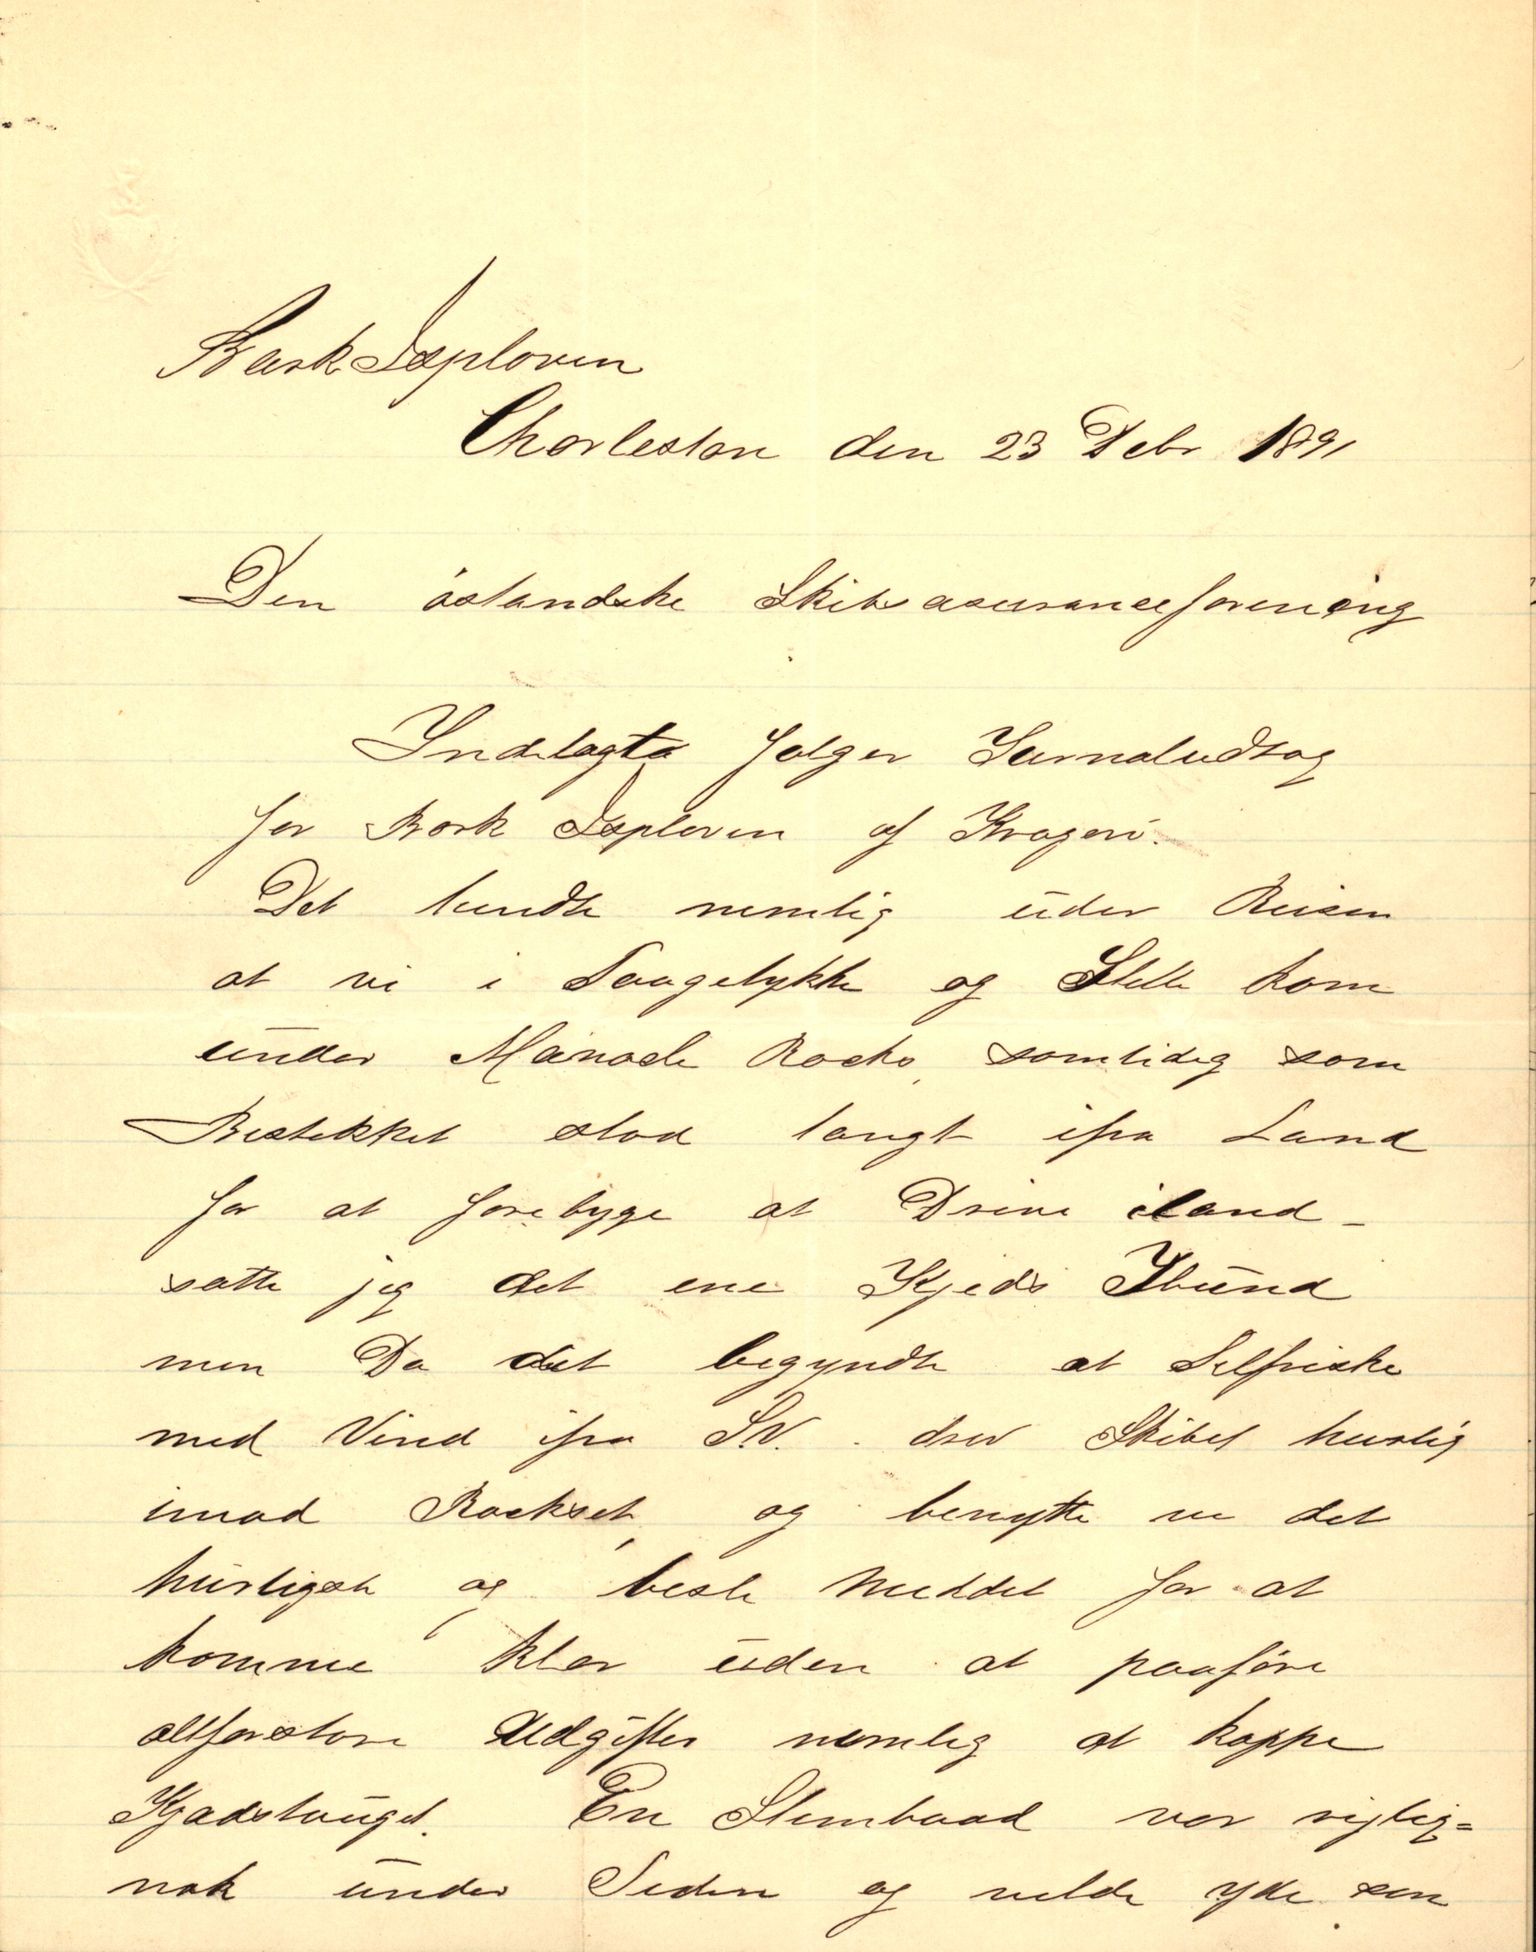 Bark Isploven
Charleston den 23 Debr 1891
Den östandske Skibsasuranceforening
Indelagte folger Jurnaludtog
for Bark Isploven af Kragerö.
Det hendte nemlig under Reisen
at vi i Taagetykke og Stille kom
under Manacle Rocks, samtidig som
Bestekket stod langt ifra Land
for at forebyge at Drive iland -
satte jeg det ene Kjeds Ibund
men Da det begyndte at Selfriske
med Vind ifra S.V. drev Skibet hurtig
imod Rockset, og benytte vi det
hurtigste og beste Middel for at
komme klar uden at paaföre
altforstore Udgifter nemlig at kappe
Kjædstouget. En Stembaad var rigtig=
nok under Siden og vilde yde sin